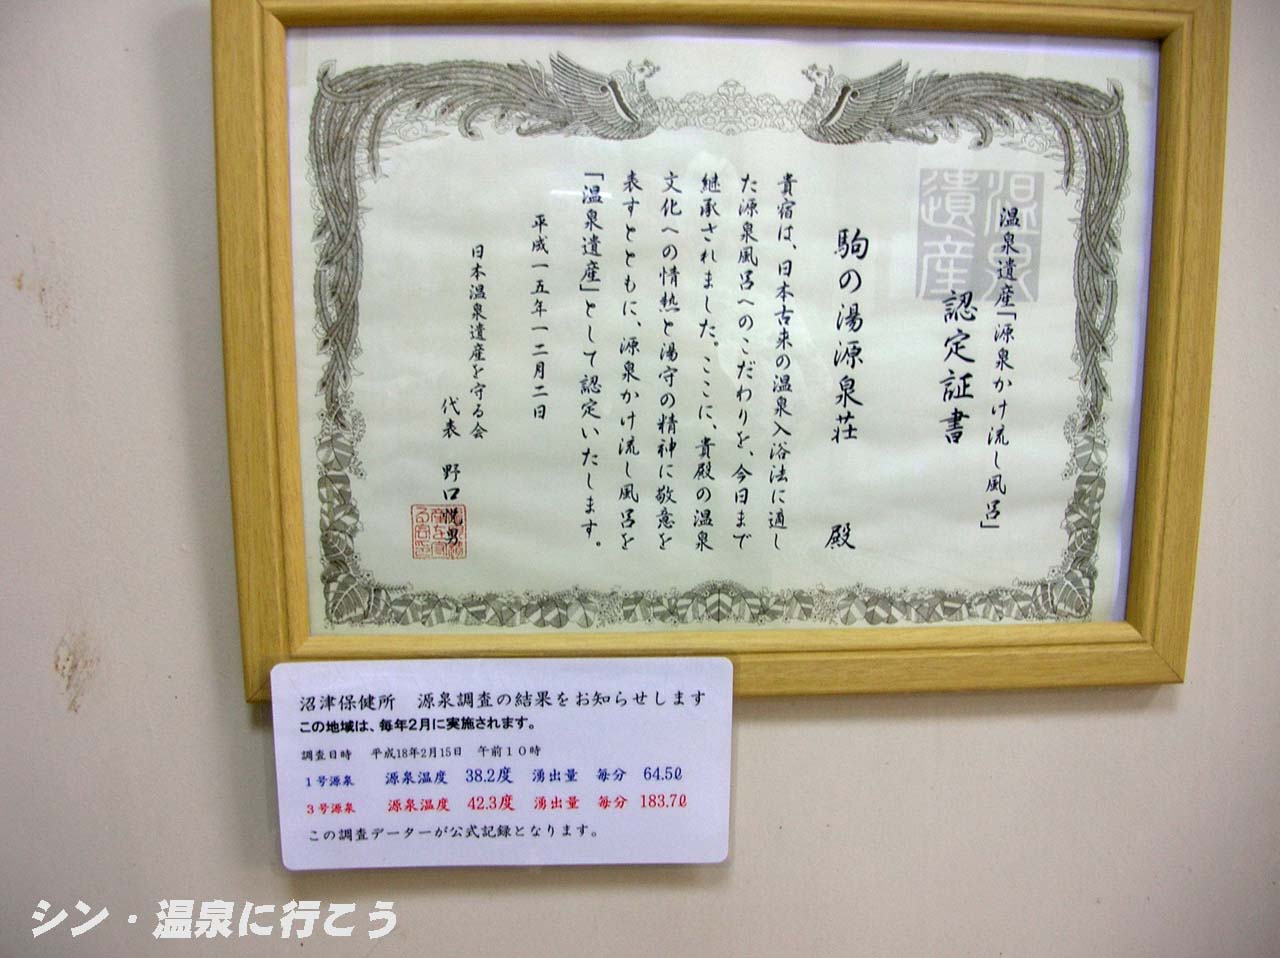 温泉遺産
温泉遺産「源泉かけ流し風呂」
認定証書
駒の湯源泉荘 殿
貴宿は、日本古来の温泉入浴法に適し
た源泉風呂へのこだわりを、今日まで
継承されました。ここに、貴殿の温泉
文化への情熱と湯守の精神に敬意を
表すとともに、源泉かけ流し風呂を
「温泉遺産」として認定いたします。
平成一五年一二月二日
日本温泉遺産を守る会
代表 野口悦男
沼津保健所 源泉調査の結果をお知らせします
この地域は、毎年2月に実施されます。
調査日時 平成18年2月15日 午前10時
1号源泉 源泉温度 38.2度 湧出量 毎分 64.5ℓ
3号源泉 源泉温度 42.3度 湧出量 毎分 183.7ℓ
この調査データーが公式記録となります。
シン・温泉に行こう